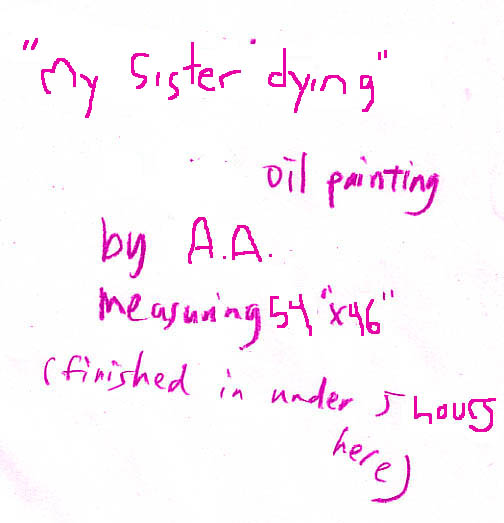 "My Sister dying"
oil painting
by A.A.
measuring 54"x46"
(finished in under 5 hours
here)